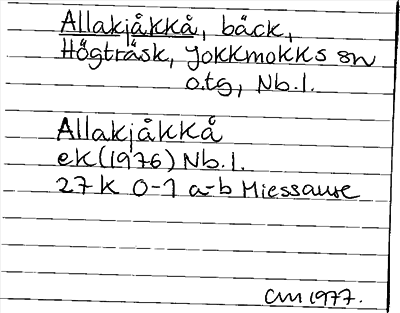 Allakjåkkå, bäck,
Högträsk, Jokkmokks sn
o.tg, Nb.l.
Allakjåkkå
ek (1976) Nb.l.
27K 0-1 a-b Miessaure
CM 1977.